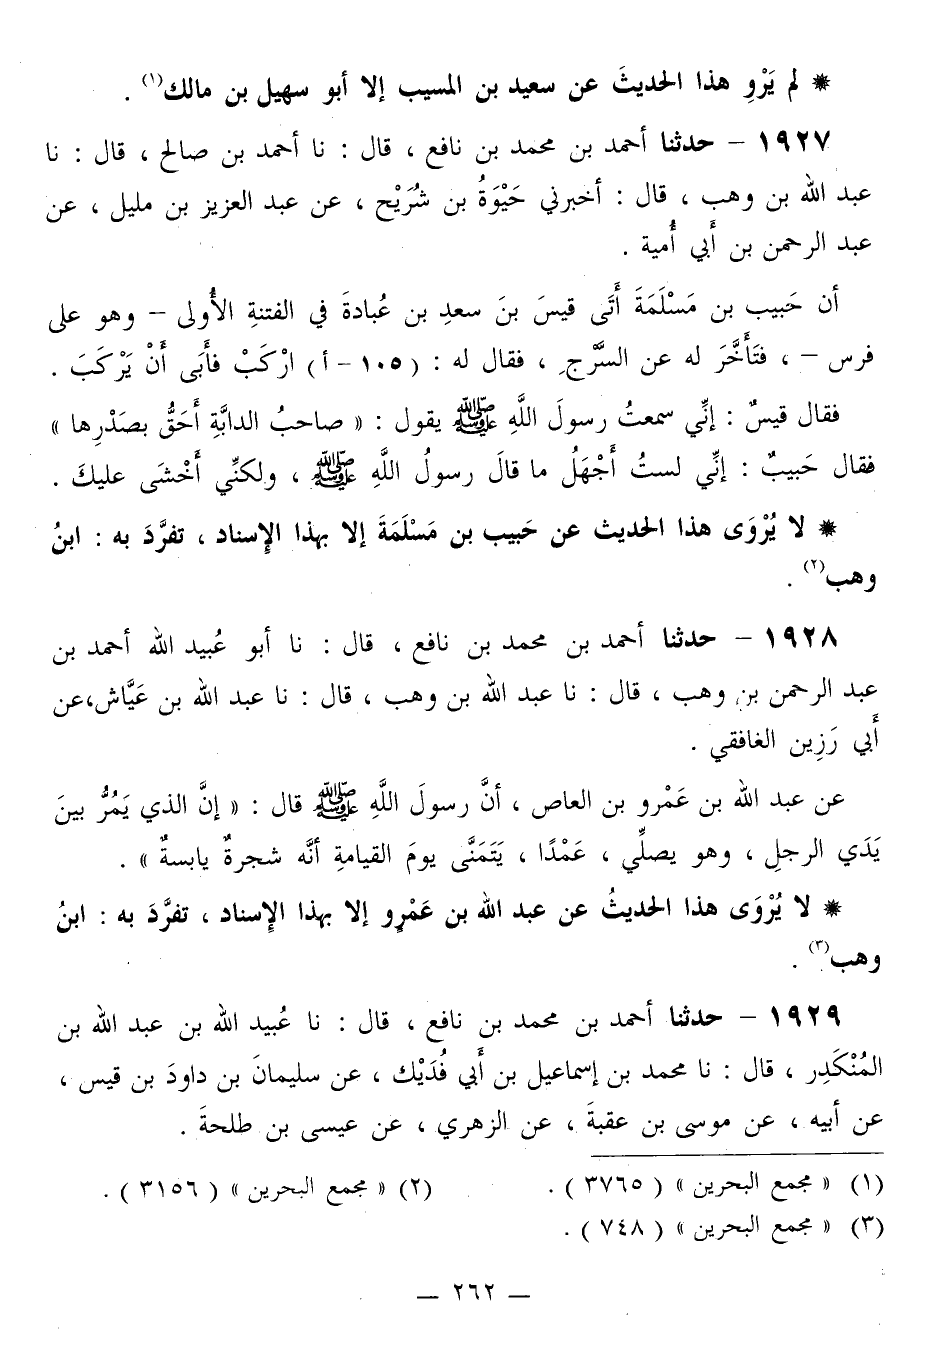 * لم يَرْوِ هذا الحديثَ عن سعيد بن المسيب إلا أبو سهيل بن مالك(١) .
١٩٢٧ – حدثنا أحمد بن محمد بن نافع ، قال : نا أحمد بن صالح ، قال : نا
عبد الله بن وهب ، قال : أخبرني حَيْوَةُ بن شُرَيْح ، عن عبد العزيز بن مليل ، عن
عبد الرحمن بن أَبي أُمية .
أن حَبيب بن مَسْلَمَةَ أَتَى قيسَ بنَ سعدِ بن عُبادةَ في الفتنةِ الأُولى – وهو على
فرس – ، فتَأَخَّرَ له عن السَّرْجِ ، فقال له : ( ١٠٥ – أ ) ارْكَبْ فأَبَى أَنْ يَرْكَبَ .
فقال قيسٌ : إنِّي سمعتُ رسولَ اللَّهِ ﷺ يقول : « صاحبُ الدابَّةِ أَحَقُّ بصَدْرِها »
فقال حَبيبٌ : إنِّي لستُ أَجْهَلُ ما قالَ رسولُ اللَّهِ ﷺ ، ولكنِّي أَخْشَى عليكَ .
* لا يُرْوَى هذا الحديث عن حَبيب بن مَسْلَمَةَ إلا بهذا الإِسناد ، تفرَّدَ به : ابنُ
وهب(٢) .
١٩٢٨ – حدثنا أحمد بن محمد بن نافع ، قال : نا أبو عُبيد الله أحمد بن
عبد الرحمن بن وهب ، قال : نا عبد الله بن وهب ، قال : نا عبد الله بن عَيَّاش،عن
أَبي رَزِين الغافقي .
عن عبد الله بن عَمْرو بن العاص ، أنَّ رسولَ اللَّهِ ﷺ قال : « إنَّ الذي يَمُرُّ بينَ
يَدَي الرجلِ ، وهو يصلِّي ، عَمْدًا ، يَتَمَنَّى يومَ القيامةِ أنَّه شجرةٌ يابسةٌ » .
* لا يُرْوَى هذا الحديثُ عن عبد الله بن عَمْرٍو إلا بهذا الإِسناد ، تفرَّدَ به : ابنُ
وهب(٣) .
١٩٢٩ – حدثنا أحمد بن محمد بن نافع ، قال : نا عُبيد الله بن عبد الله بن
المُنْكَدِر ، قال : نا محمد بن إسماعيل بن أَبي فُدَيْك ، عن سليمانَ بن داودَ بن قيس ،
عن أبيه ، عن موسى بن عقبةَ ، عن الزهري ، عن عيسى بن طلحةَ .
(١) « مجمع البحرين » ( ٣٧٦٥ ) . (٢) « مجمع البحرين » ( ٣١٥٦ ) .
(٣) « مجمع البحرين » ( ٧٤٨ ) .
— ٢٦٢ —